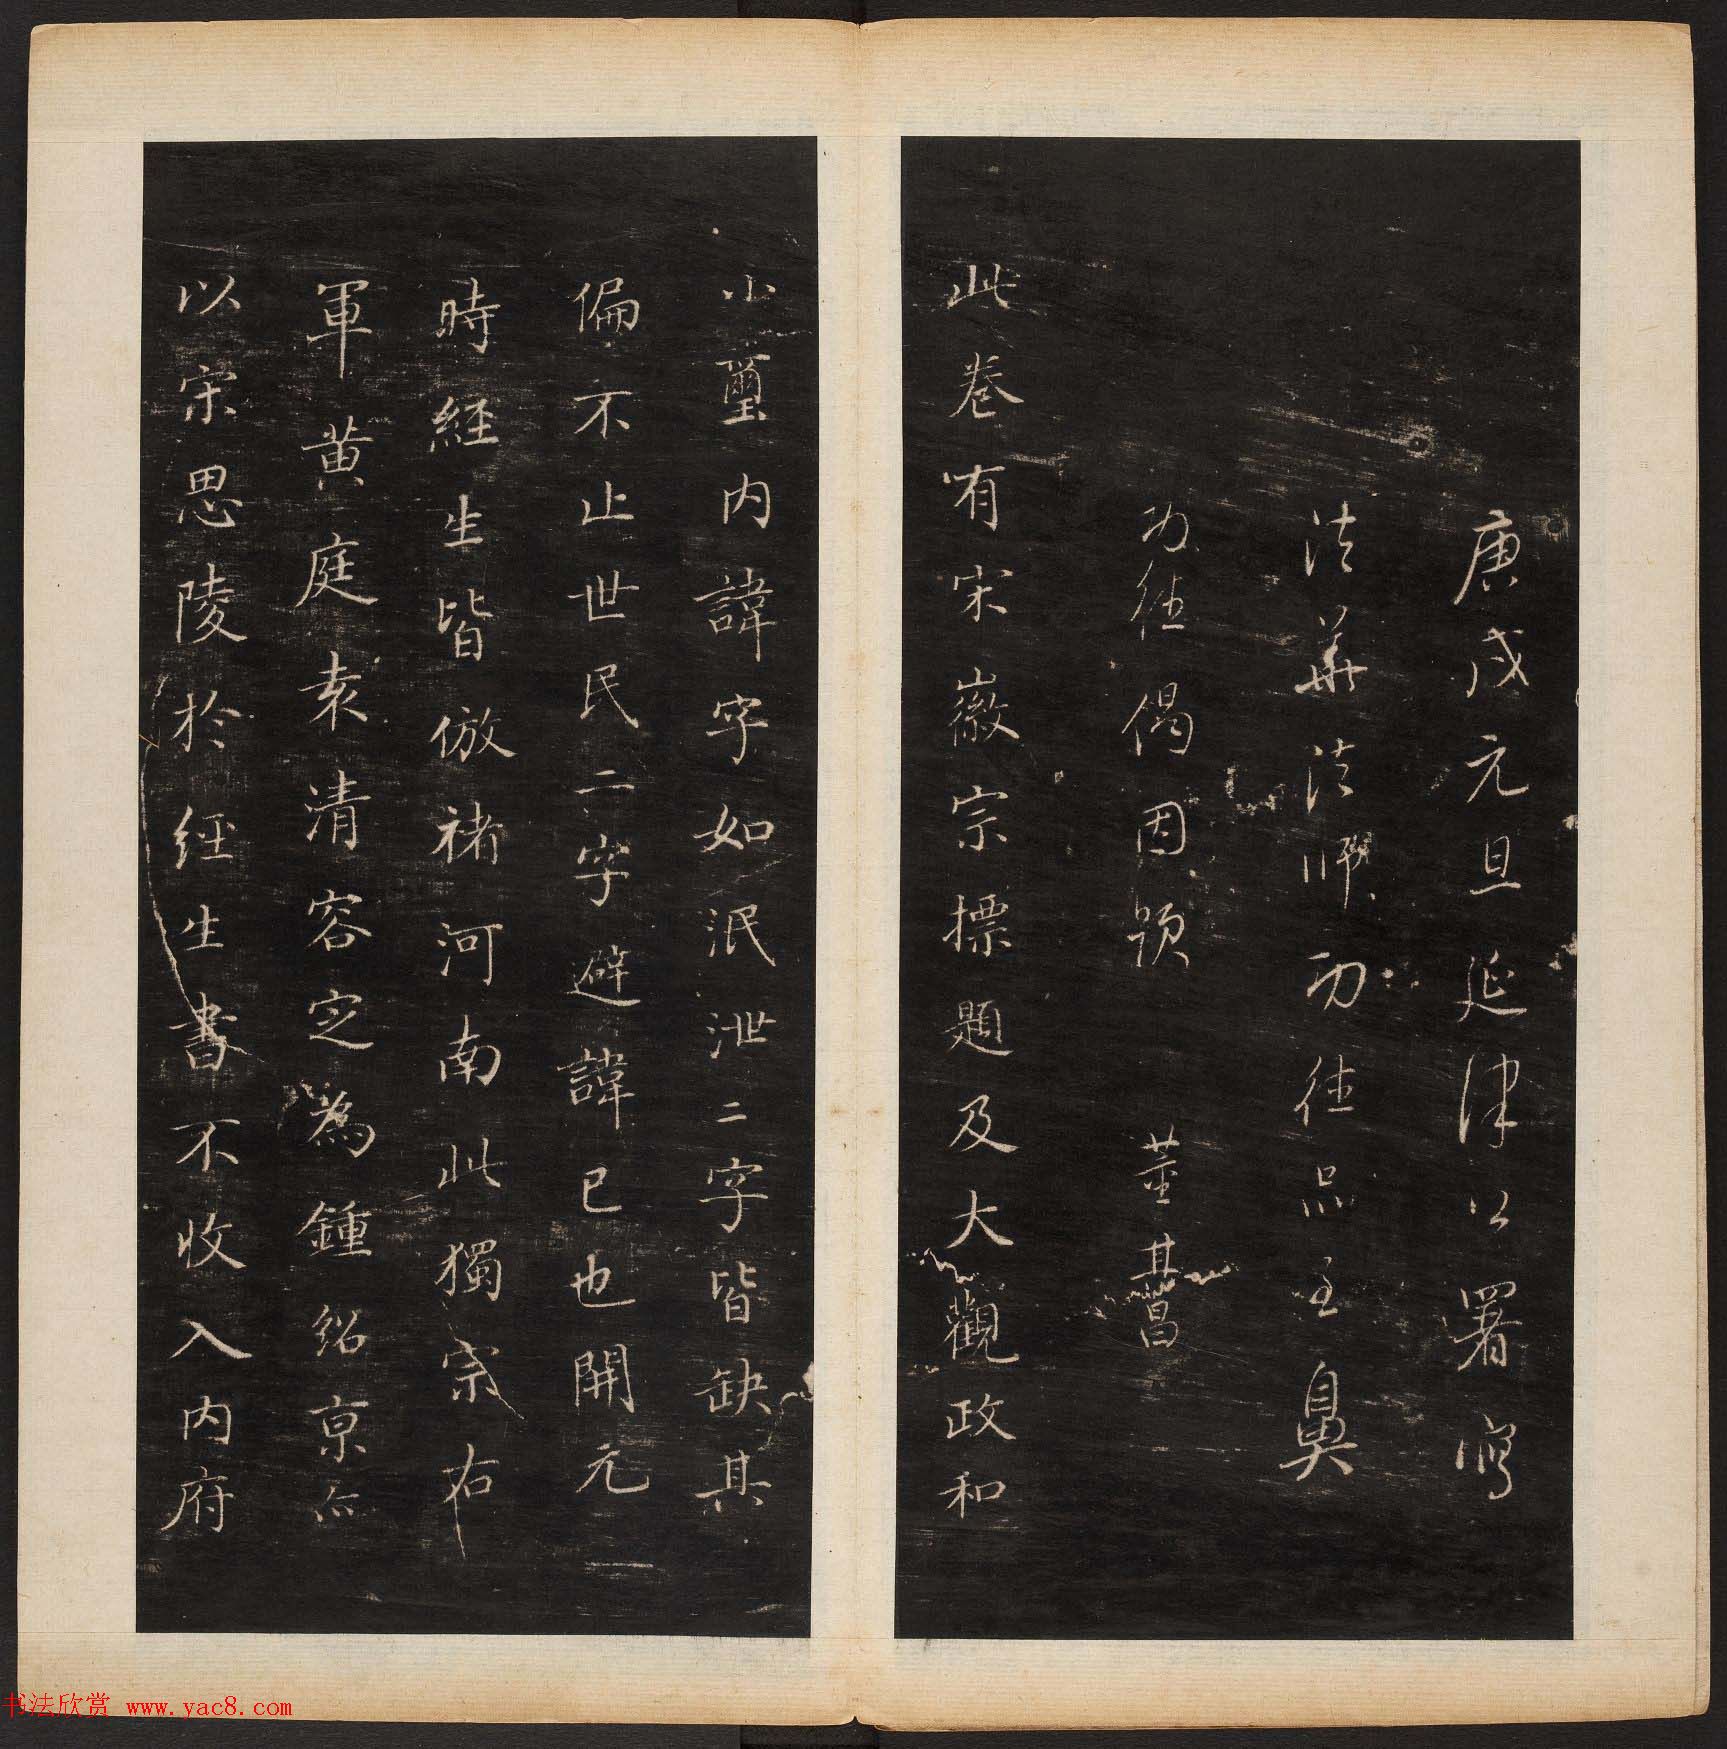 庚戌元旦延津公署寫
法華法師功德品至鼻
功德偈因題 董其昌
此卷有宋徽宗摽題及大觀政和
小璽内諱字如泯泄二字皆缺其
偏不止世民二字避諱已也開元
時經生皆倣褚河南此獨宗右
軍黄庭袁清容定為鍾紹京亦
以宋思陵於經生書不收入内府
书法欣赏 www.yac8.com